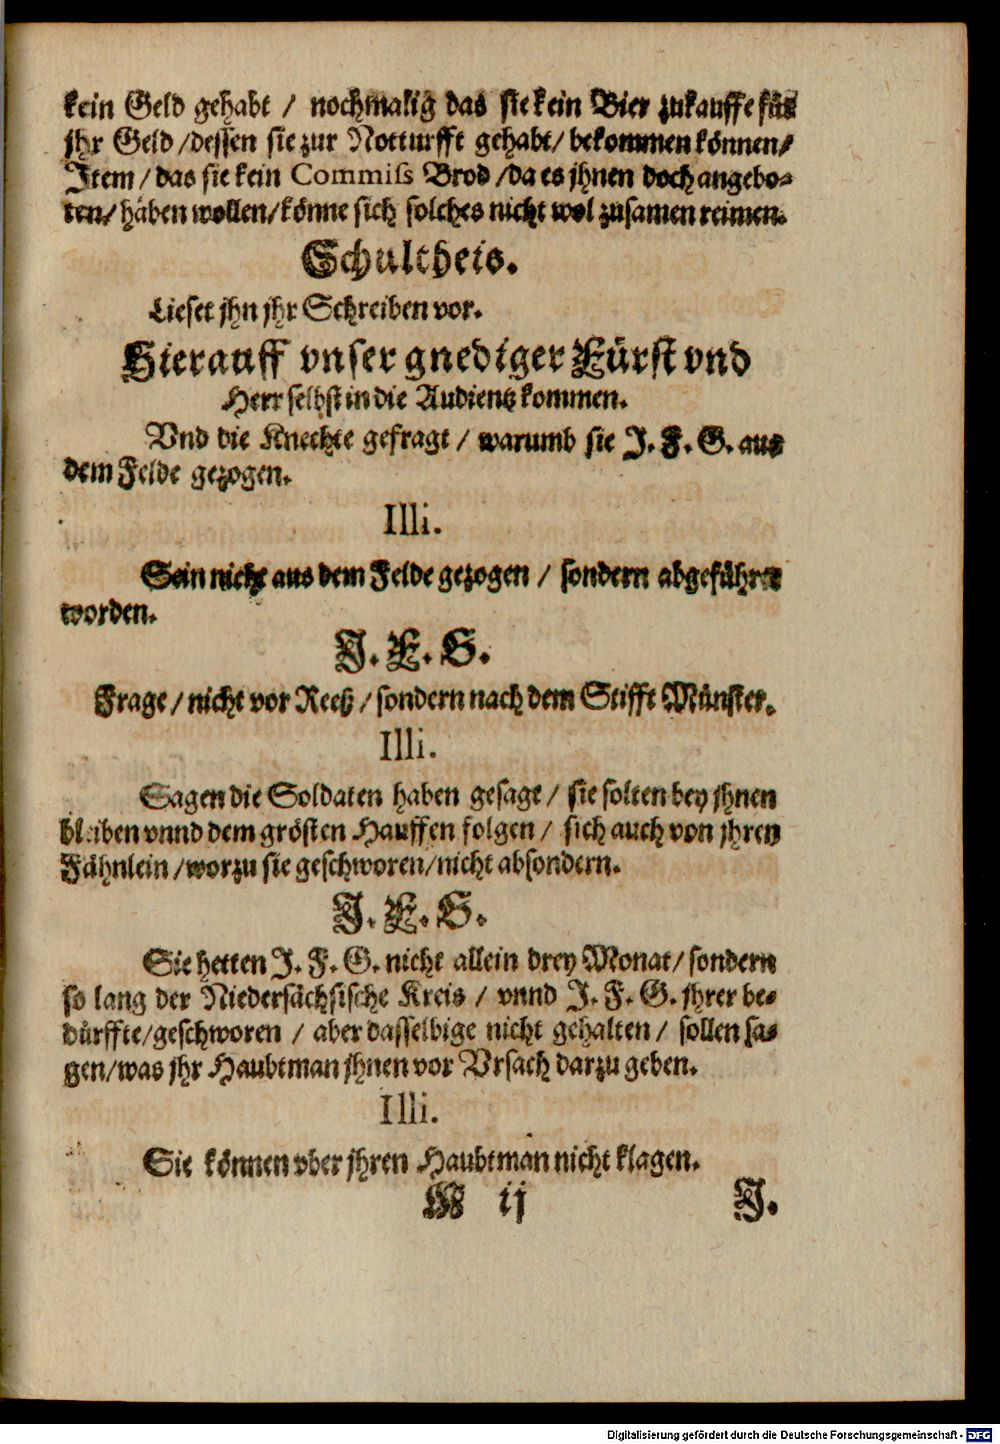 kein Geld gehabt / nochmalig das sie kein Bier zukauffe für
jhr Geld /dessen sie zur Notturfft gehabt/ bekommen können/
Item / das sie kein Commiss Brod /da es jhnen doch angebo-
ten/ häben wollen/könne sich solches nicht wol zusamen reimen.
Schultheis.
Lieset jhn jhr Schreiben vor.
Hierauff vnser gnediger Fürst vnd
Herr selbst in die Audientz kommen.
Vnd die Knechte gefragt / warumb sie J. F. G. aus
dem Felde gezogen.
Illi.
Sein nicht aus dem Felde gezogen / sondern abgeführet
worden.
J. F. G.
Frage / nicht vor Reeß / sondern nach dem Stifft Münster.
Illi.
Sagen die Soldaten haben gesagt / sie solten bey jhnen
bleiben vnnd dem grösten Hauffen folgen / sich auch von jhren
Fähnlein /worzu sie geschworen/nicht absondern.
J. F. G.
Sie hetten J. F. G. nicht allein drey Monat/ sondern
so lang der Niedersächsische Kreis / vnnd J. F. G. jhrer be-
dürffte/geschworen / aber dasselbige nicht gehalten / sollen sa-
gen/was jhr Haubtman jhnen vor Vrsach darzu geben.
Illi.
Sie können vber jhren Haubtman nicht klagen.
M ij J.
Digitalisierung gefördert durch die Deutsche Forschungsgemeinschaft - DFG